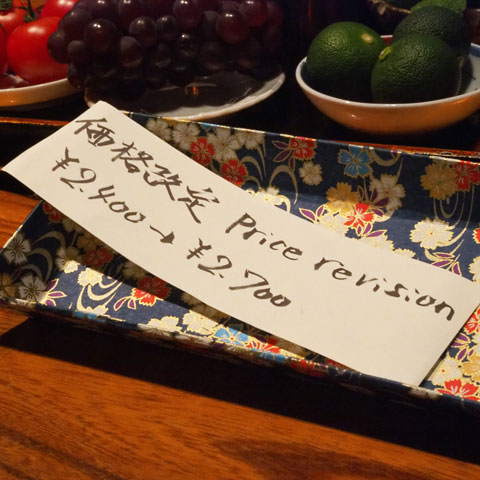 価格改定 Price revision
¥2.400→¥2.700